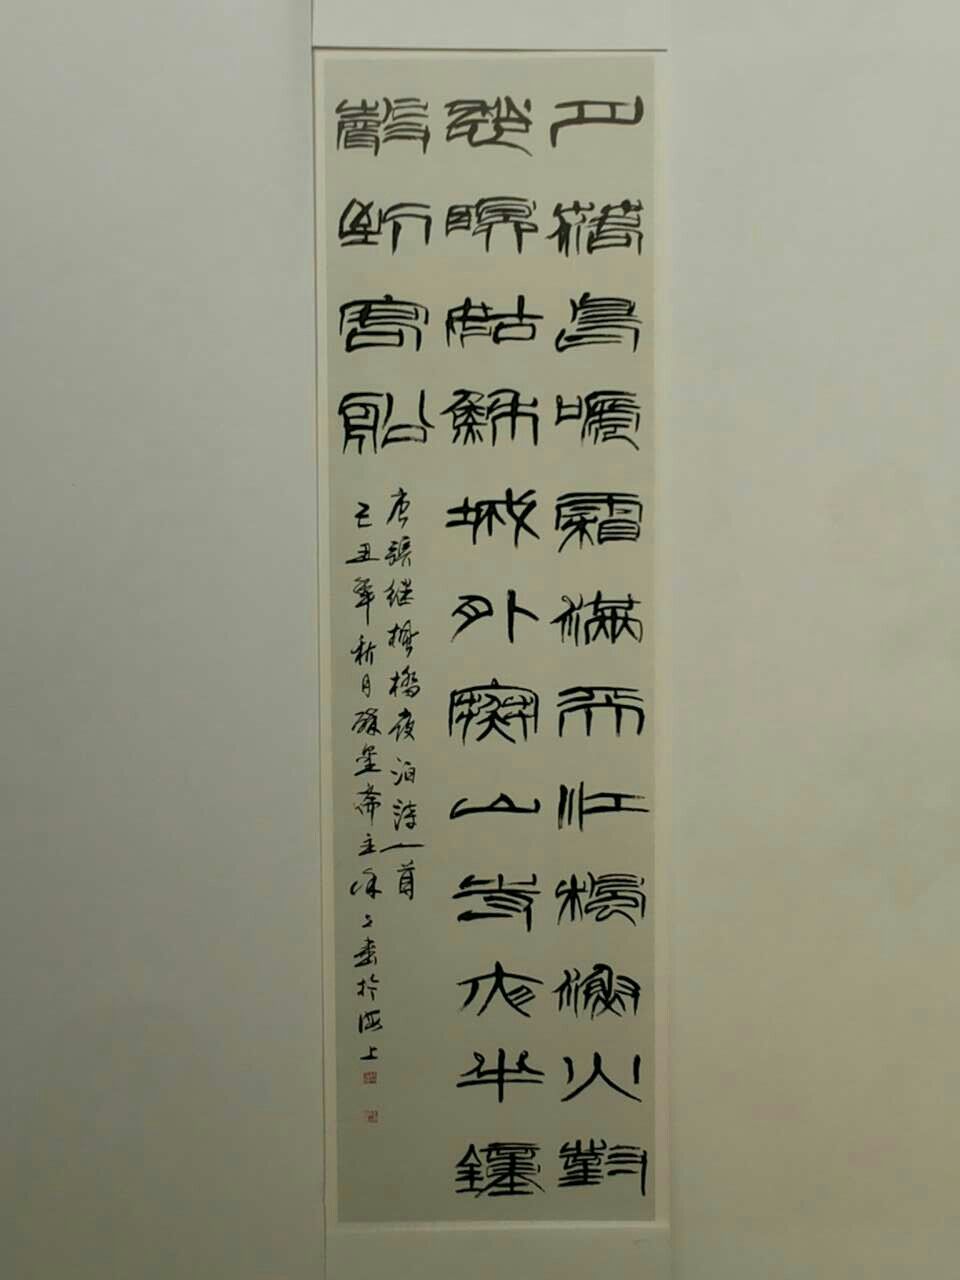 月落烏啼霜滿天江楓漁火對
愁眠姑蘇城外寒山寺夜半鐘
聲到客船
唐張继楓橋夜泊詩一首
己丑年秋月墨斋主書於海上